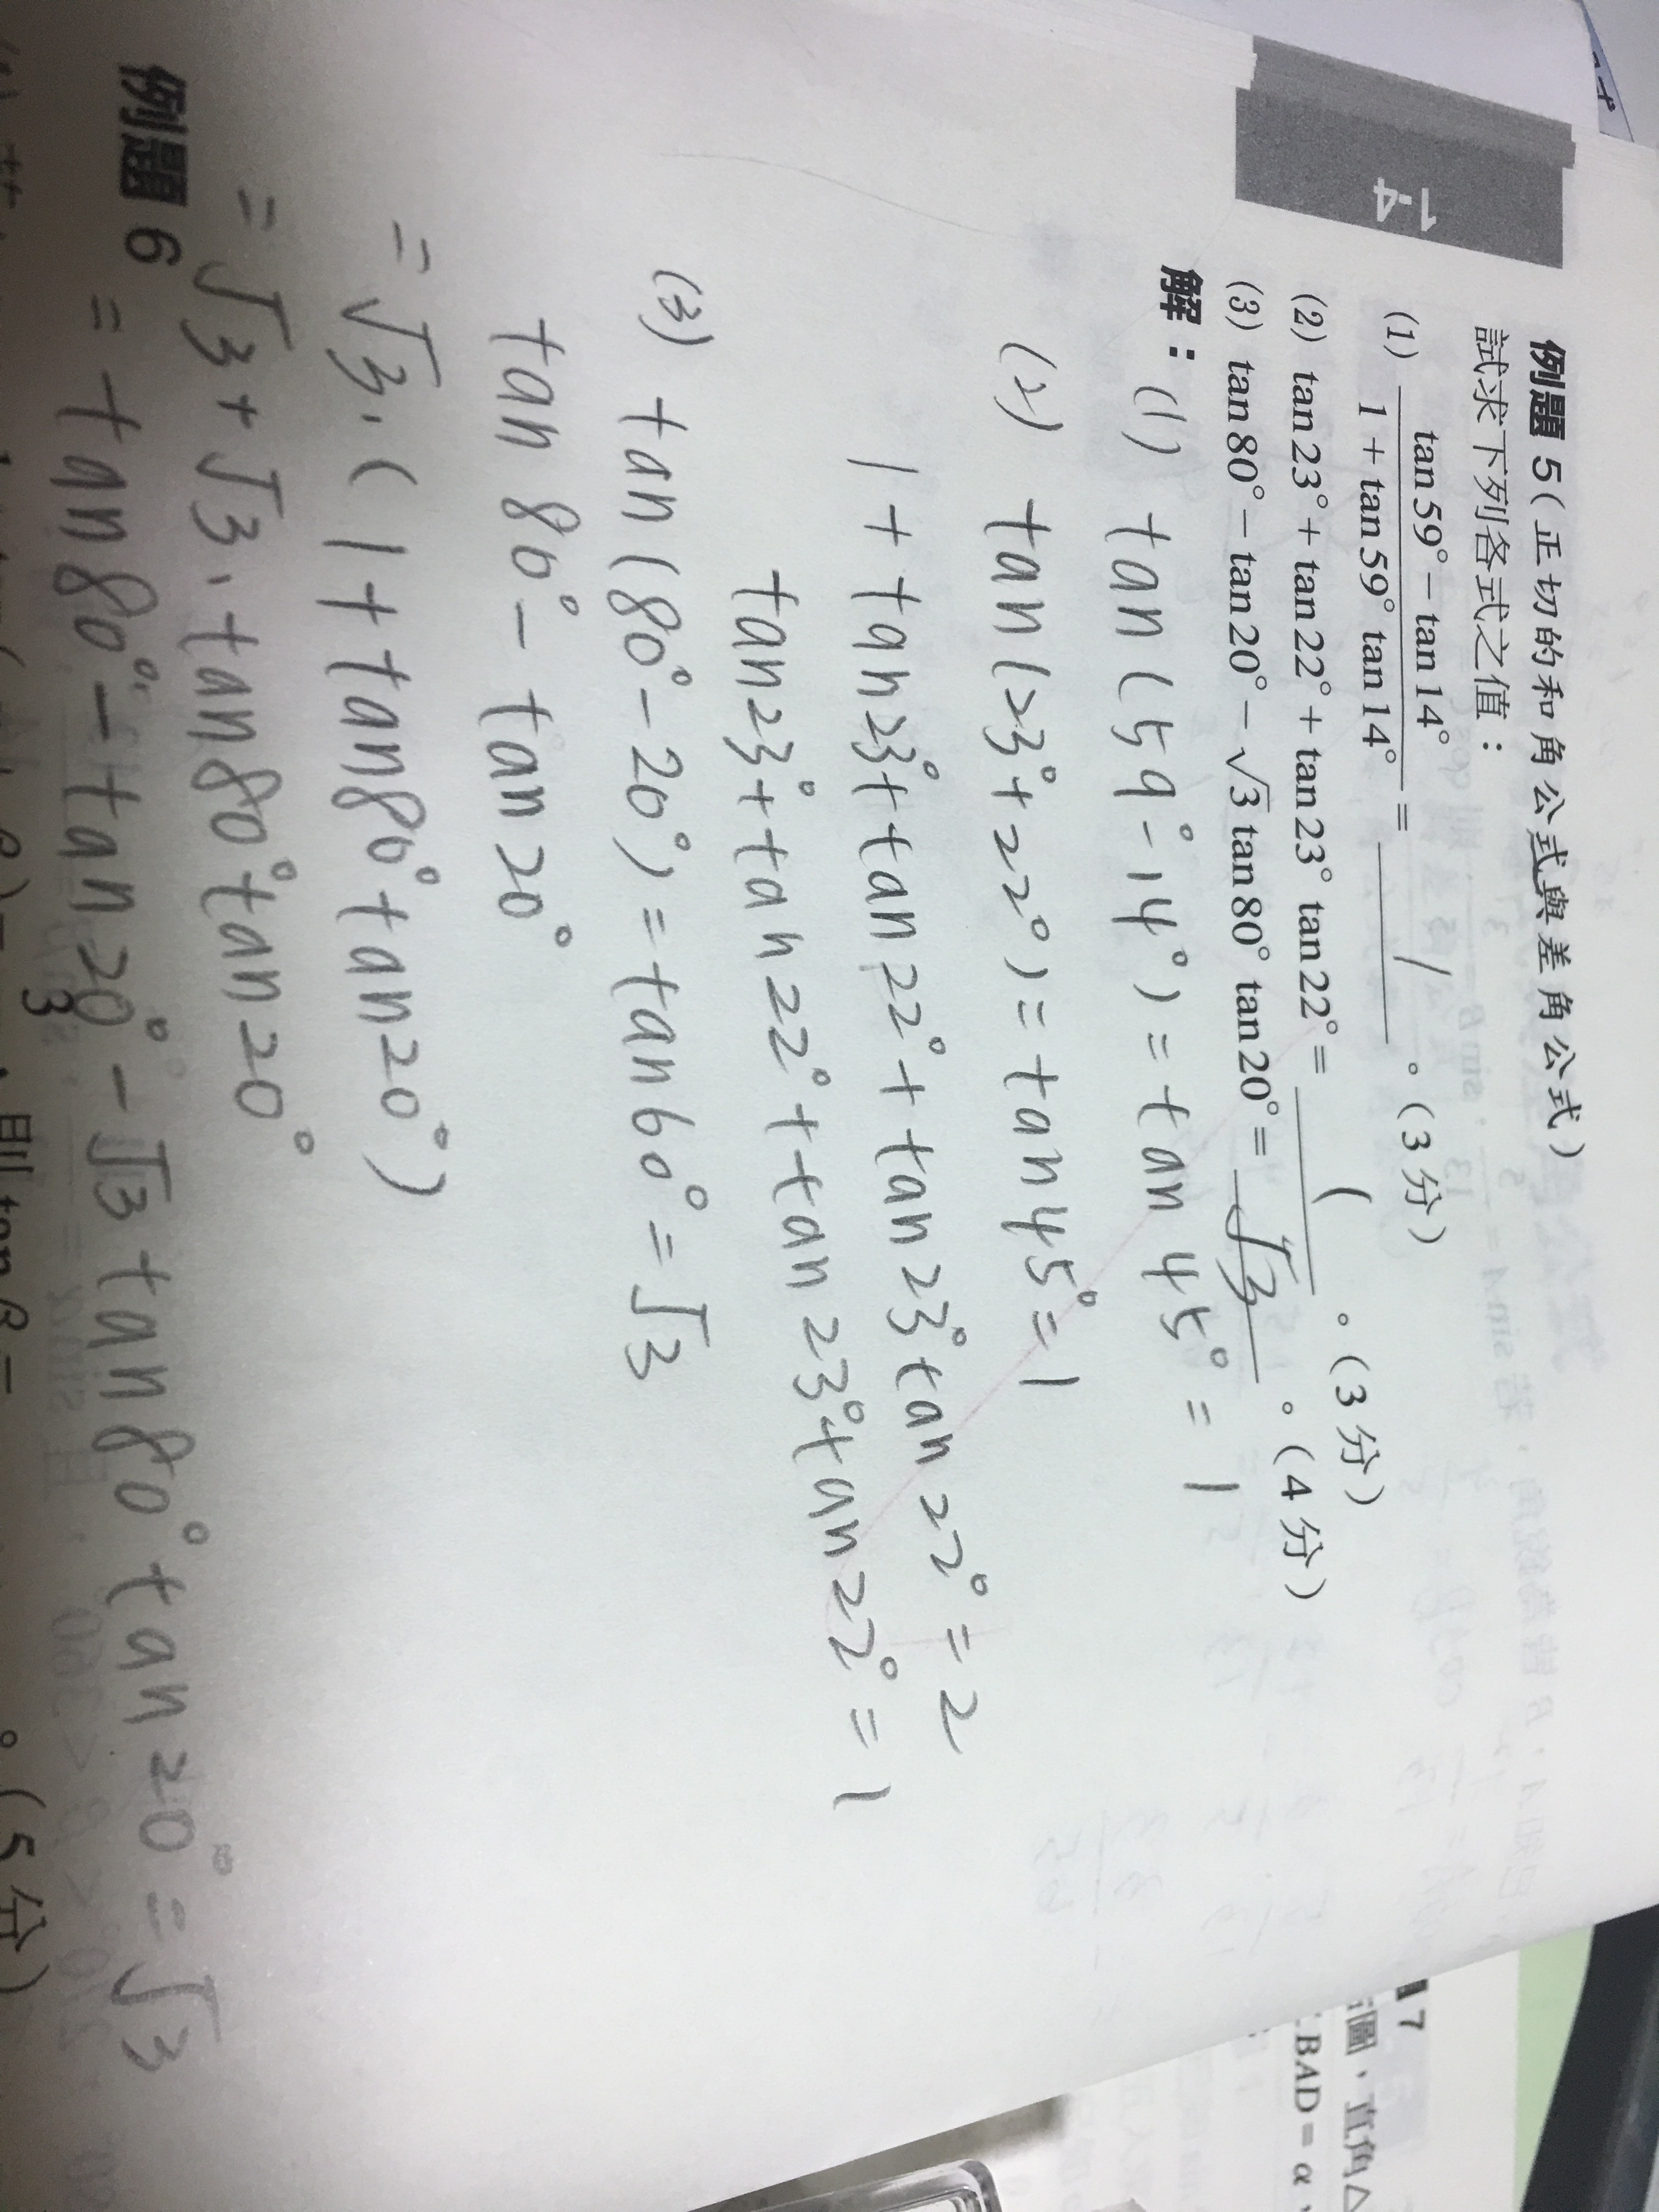 1-4
例題 5 (正切的和角公式與差角公式)
試求下列各式之值：
(1) \frac{tan 59° − tan 14°}{1 + tan 59° tan 14°} = 1 。(3分)
(2) tan 23° + tan 22° + tan 23° tan 22° = 1 。(3分)
(3) tan 80° − tan 20° − √3 tan 80° tan 20° = √3 。(4分)
解：(1) tan (59° - 14°) = tan 45° = 1
(2) tan (23° + 22°) = tan 45° = 1
1 + tan 23° + tan 22° + tan 23° tan 22° = 2
tan 23° + tan 22° + tan 23° tan 22° = 1
(3) tan (80° - 20°) = tan 60° = √3
tan 80° - tan 20°
= √3 · (1 + tan 80° tan 20°)
= √3 + √3 · tan 80° tan 20°
= tan 80° - tan 20° - √3 tan 80° tan 20° = √3
例題 6
3
則 tan β =
。(5分)
7
圖，直角△
BAD = α，